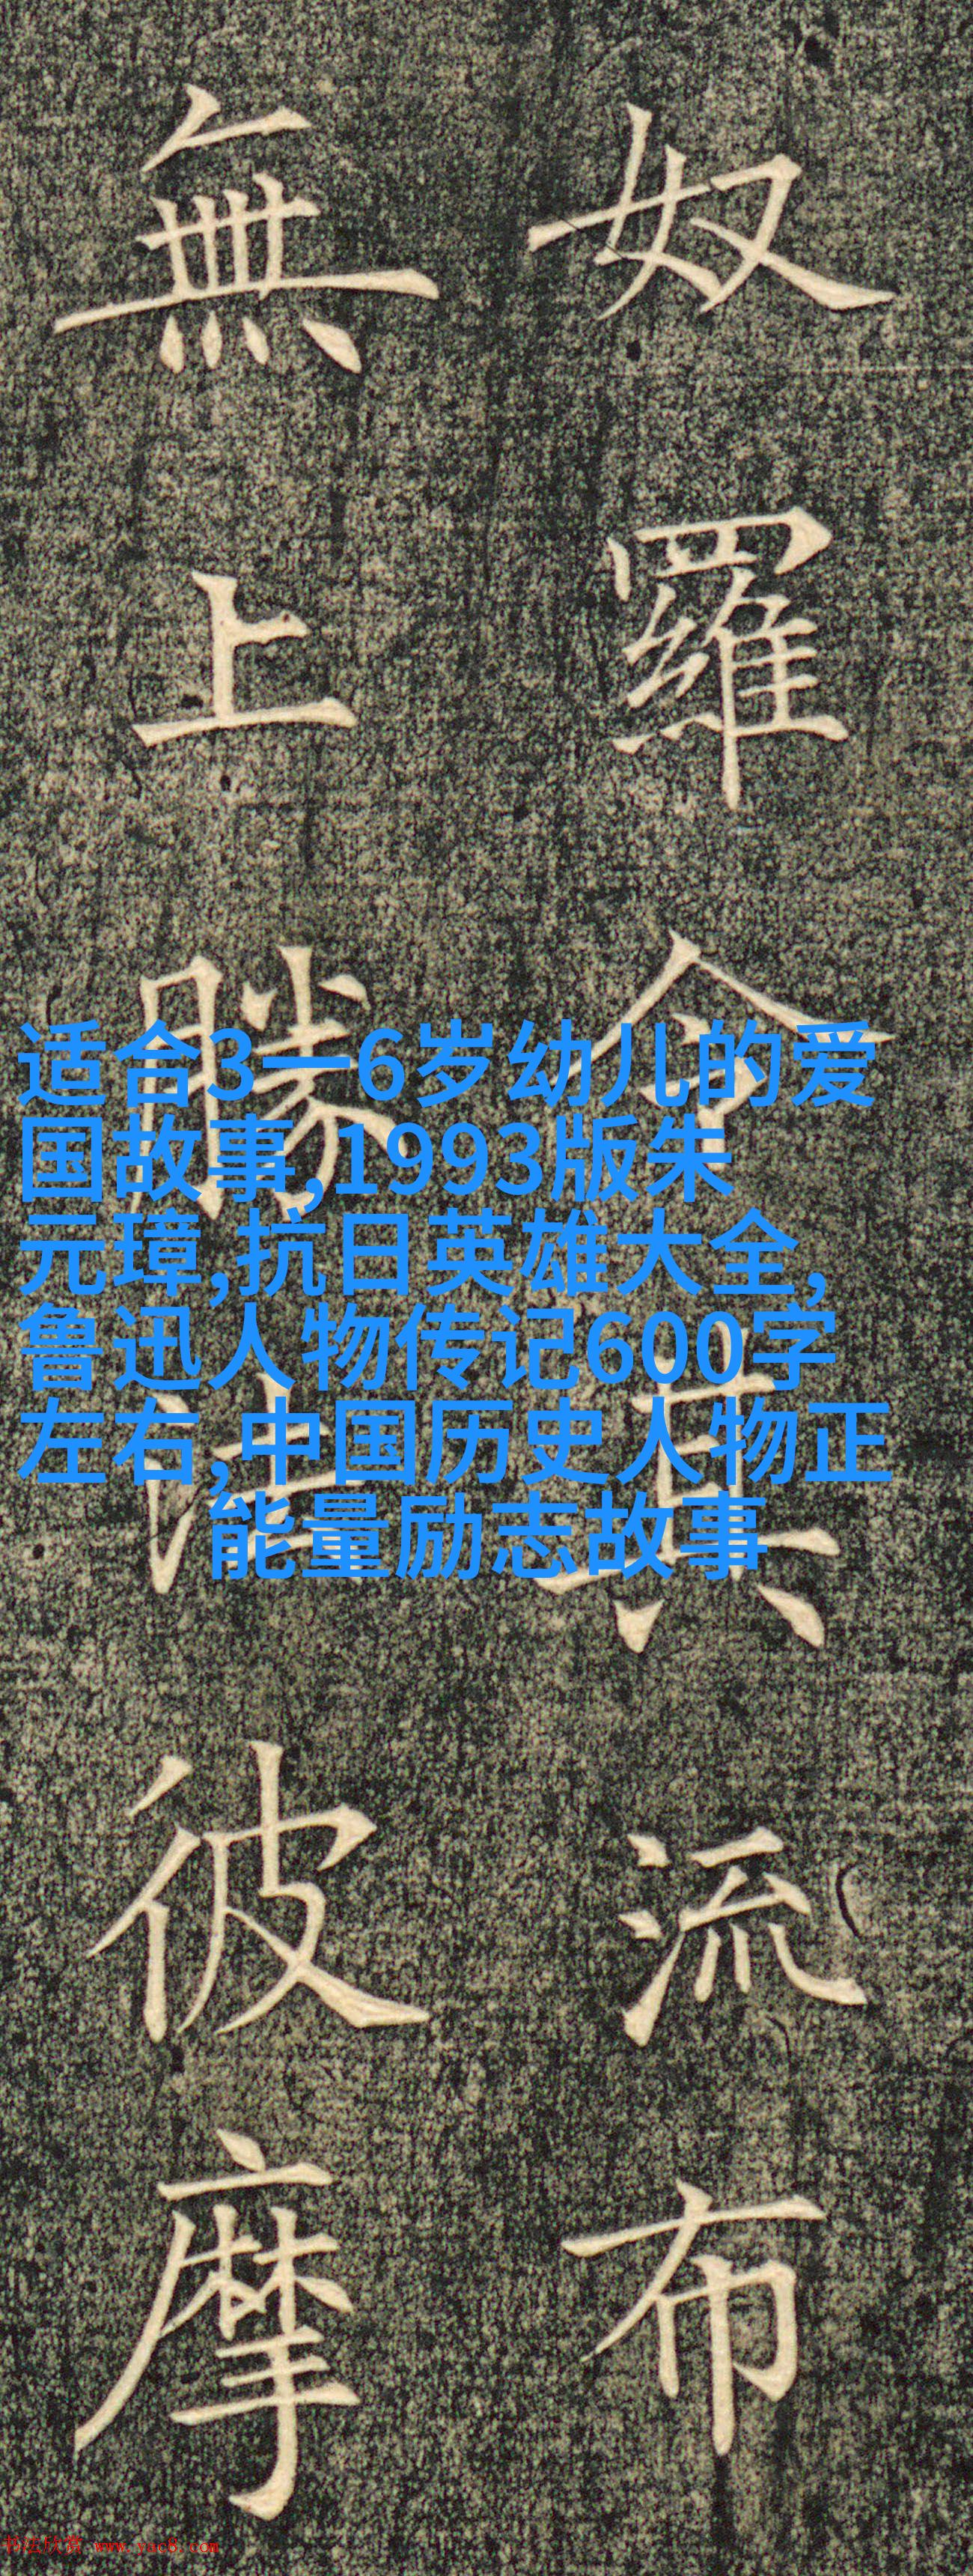 奴羅令其流布
無上勝法彼摩
适合3一6岁幼儿的爱
国故事,1993版朱
元璋,抗日英雄大全,
鲁迅人物传记600字
左右,中国历史人物正
能量励志故事
书法欣赏 www.yac8.com